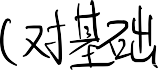 (对基础